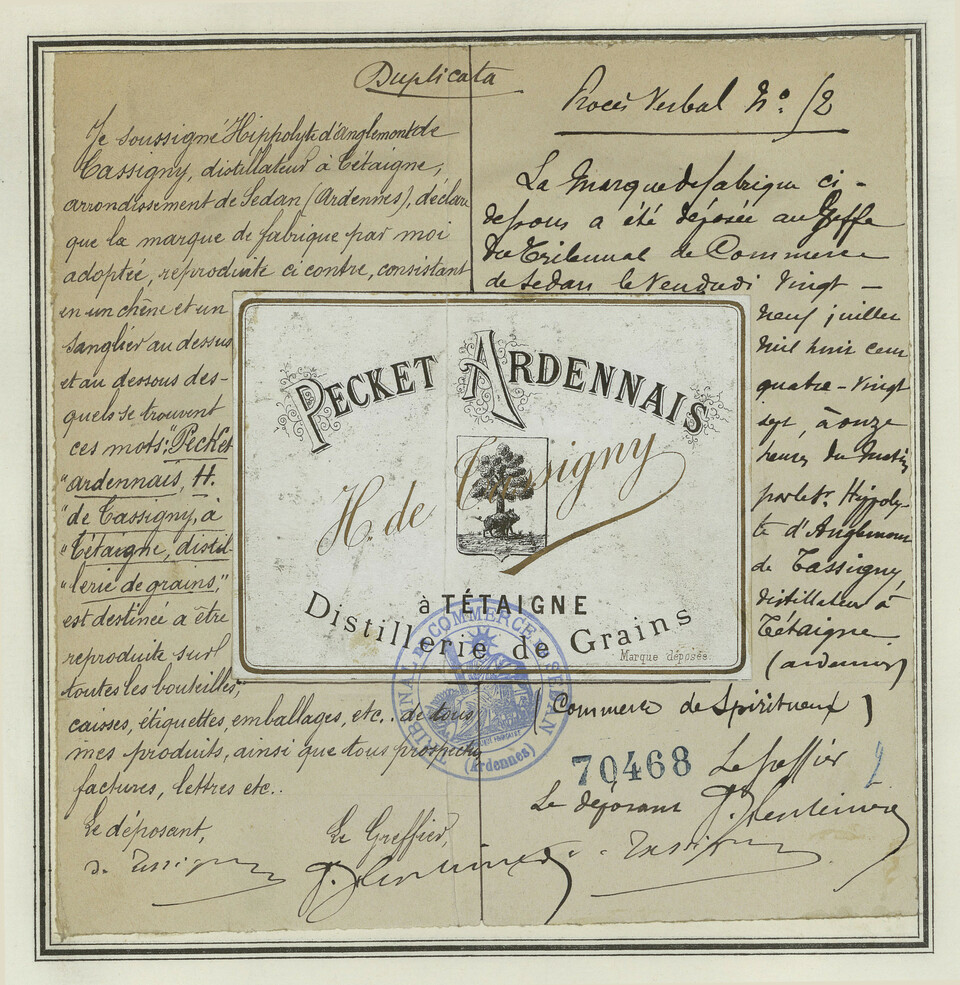 Duplicata
Je soussigné Hippolyte d'Anglemont de
Tassigny, distillateur à Tétaigne,
arrondissement de Sedan (Ardennes), déclare
que la marque de fabrique par moi
adoptée, reproduite ci contre, consistant
en un chêne et un
sanglier au dessus
et au dessous des-
quels se trouvent
ces mots: "Pecket
"ardennais, H.
"de Tassigny, à
"Tétaigne, distil-
"lerie de grains,"
est destinée a être
reproduite sur
toutes les bouteilles,
caisses, étiquettes, emballages, etc.. de tous
mes produits, ainsi que tous prospectus
factures, lettres etc..
Le déposant,
Le Greffier,
d. Tassigny
Procès Verbal No. 52
La Marque de fabrique ci-
dessous a été déposée au Greffe
du Tribunal de Commerce
de Sedan le Vendredi Vingt-
neuf juillet
mil huit cent
quatre-vingt
sept, à onze
heures du matin
par le Sr. Hippoly-
te d'Anglemont
de Tassigny,
distillateur à
Tétaigne
(ardennes)
(Commerce de Spiritueux)
70468
Le Greffier
2
Le déposant
d. Tassigny
PECKET ARDENNAIS
H. de Tassigny
à TÉTAIGNE
Distillerie de Grains
Marque déposée.
TRIBUNAL DE COMMERCE DE SEDAN
(Ardennes)